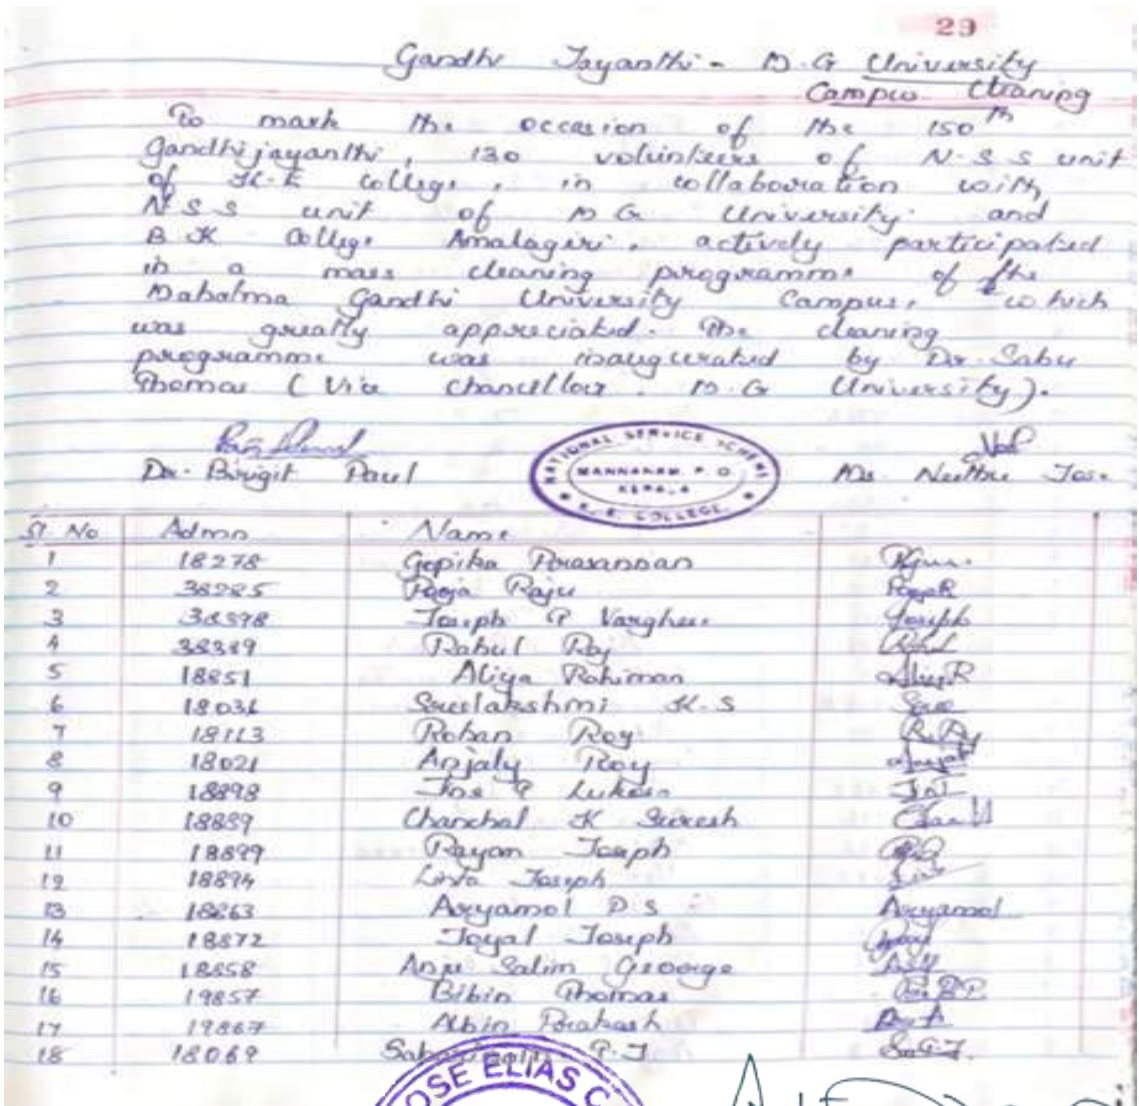 29
Gandhi Jayanthi - M.G University
Campus Cleaning
To mark the occasion of the 150th
Gandhijayanthi, 130 volunteers of N.S.S unit
of K.E college, in collaboration with
NSS unit of MG University and
B K College Amalagiri, actively participated
in a mass cleaning programme of the
Mahatma Gandhi University Campus, which
was greatly appreciated. The cleaning
programme was inaugurated by Dr. Sabu
Thomas (Vice Chancellor, M.G University).
Dr. Birigit Paul
NATIONAL SERVICE SCHEME
MANNANAM P.O
KERALA
K.E. COLLEGE
Ms Neethu Jose
Sl No Admn Name
1 18278 Gopika Prasannan
2 38285 Pooja Raju Pooja R
3 38898 Joseph P Varghese Joseph
4 38389 Rahul Raj
5 18851 Aliya Rahiman Aliya R
6 18036 Sreelakshmi K.S Sree
7 18113 Rohan Roy
8 18021 Anjaly Roy
9 18898 Jins P Lukose
10 18889 Chanchal K Suresh
11 18899 Rayan Joseph
12 18894 Linta Joseph
13 18863 Aryamol P S Aryamol
14 18872 Joyal Joseph
15 18858 Anju Salim George
16 19857 Bibin Thomas
17 19867 Albin Prakash
18 18069 P.J
OSE ELIAS C